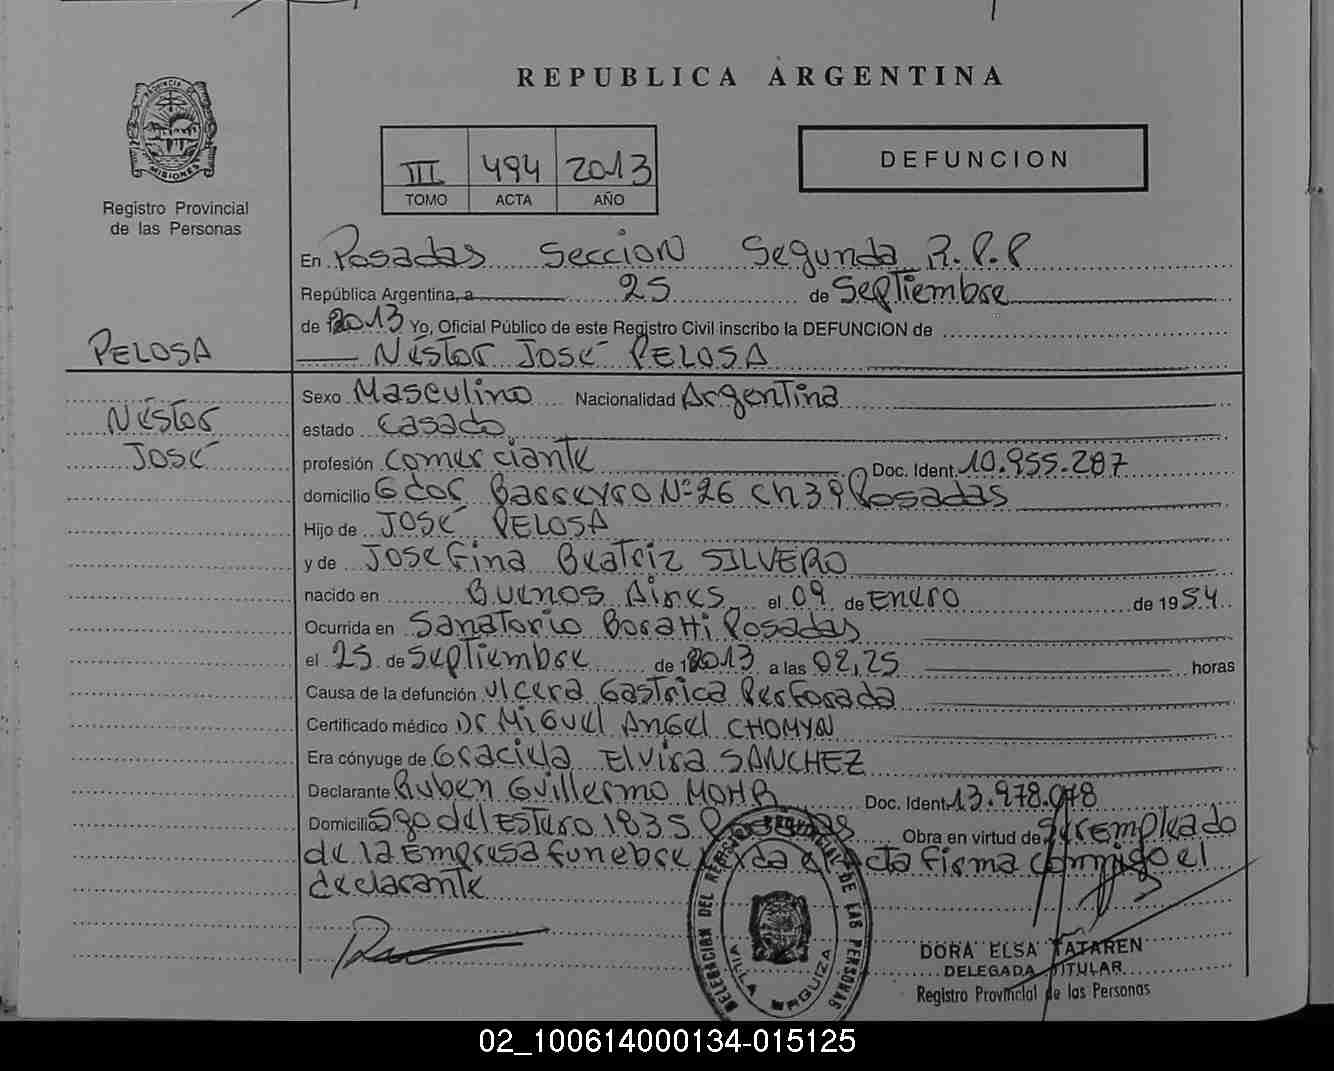 REPUBLICA ARGENTINA
PROVINCIA DE
MISIONES
Registro Provincial
de las Personas
III 494 2013
TOMO ACTA AÑO
DEFUNCION
En Posadas Seccion Segunda R.P.P
República Argentina, a 25 de Septiembre
de 2013 Yo, Oficial Público de este Registro Civil inscribo la DEFUNCION de
Néstor José PELOSA
PELOSA
Néstor
José
Sexo Masculino Nacionalidad Argentina
estado Casado
profesión Comerciante Doc. Ident. 10.955.287
domicilio Gdor Barreyro Nº 26 ch 39 Posadas
Hijo de José PELOSA
y de Josefina Beatriz SILVERO
nacido en Buenos Aires el 09 de Enero de 1954
Ocurrida en Sanatorio Boratti Posadas
el 25 de Septiembre de 2013 a las 02,25 horas
Causa de la defunción Ulcera Gastrica Perforada
Certificado médico Dr Miguel Angel CHOMYN
Era cónyuge de Graciela Elvira SANCHEZ
Declarante Ruben Guillermo MOHR Doc. Ident. 13.978.078
Domicilio Sgo del Estero 1835 Posadas Obra en virtud de Ser empleado
de la Empresa funebre acta firma conmigo el
declarante
DELEGACION DEL REGISTRO PROVINCIAL DE LAS PERSONAS
VILLA URQUIZA
DORA ELSA TATAREN
DELEGADA TITULAR
Registro Provincial de las Personas
02_100614000134-015125